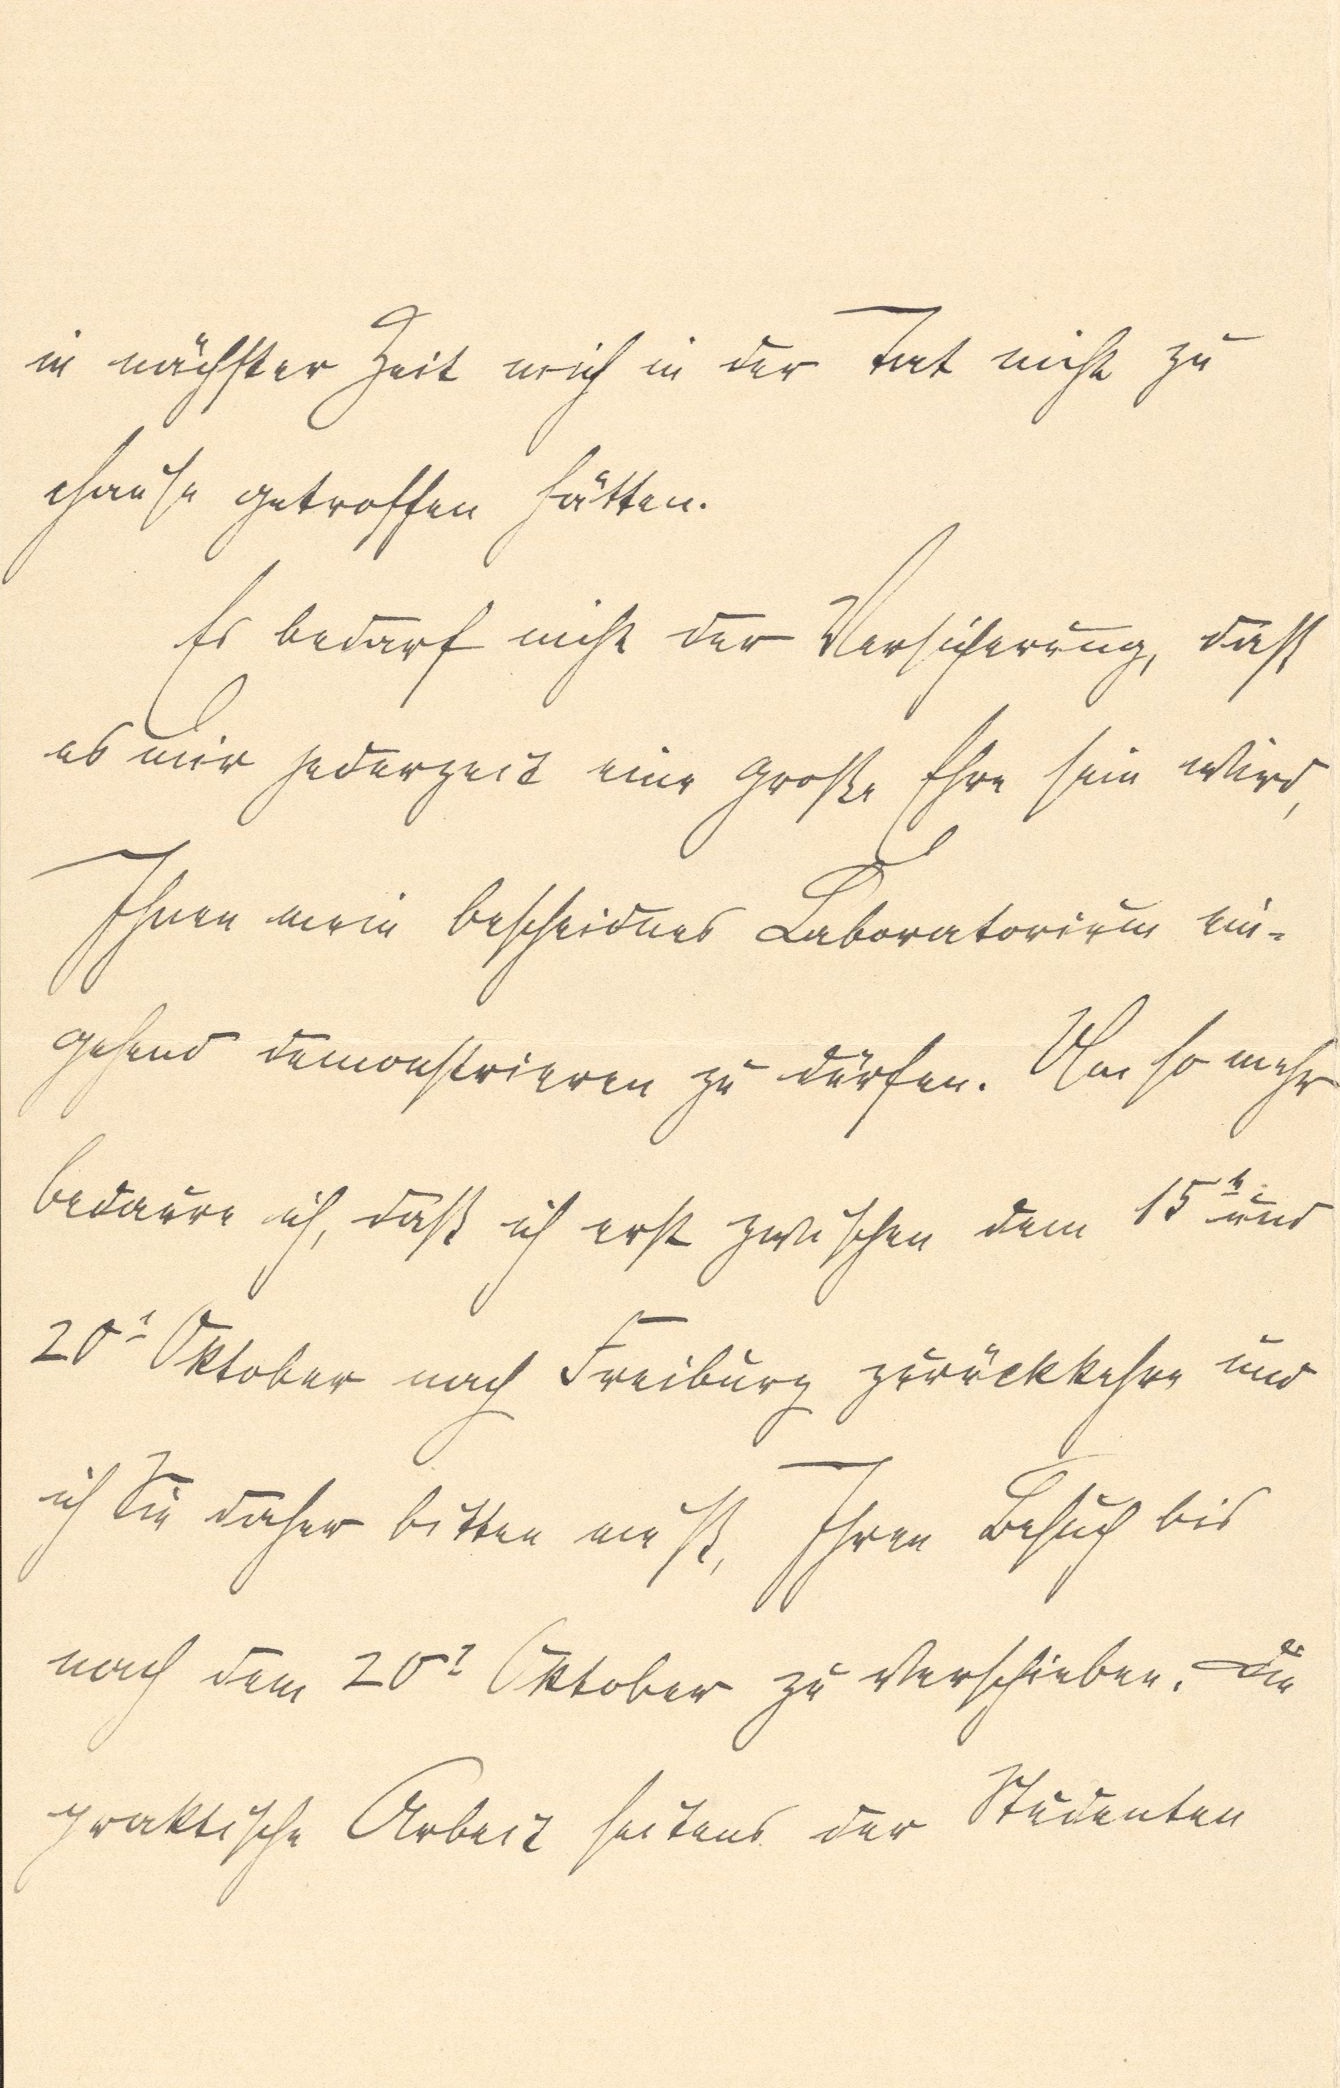 in nächster Zeit mich in der Tat nicht zu
Hause getroffen hätten.
Es bedarf nicht der Versicherung, daß
es mir jederzeit eine große Ehre sein wird,
Ihnen mein bescheidnes Laboratorium ein-
gehend demonstrieren zu dürfen. Um so mehr
bedaure ich, daß ich erst zwischen dem 15t und
20t Oktober nach Freiburg zurückkehre und
ich Sie daher bitten muß, Ihren Besuch bis
nach dem 20t Oktober zu verschieben. Die
praktische Arbeit seitens der Studenten